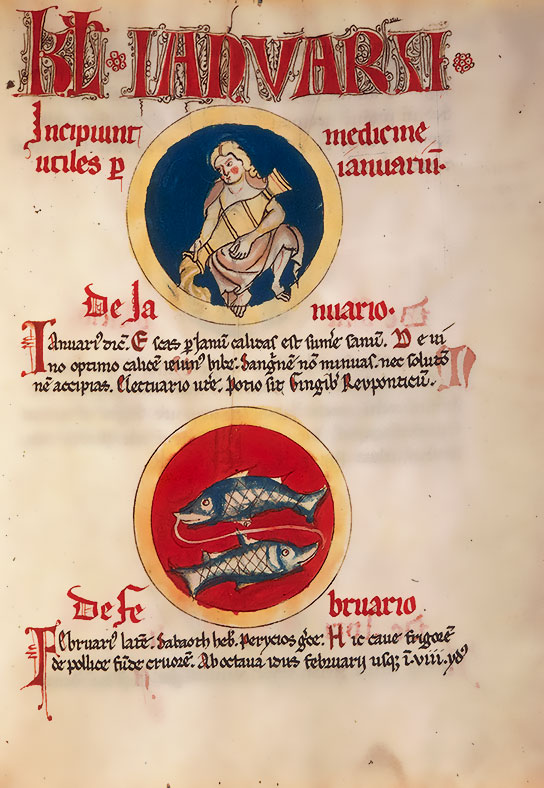 KL IANVARII
Incipiunt medicine
utiles p ianuariũ.
De Ia nuario.
Ianuari⁹ dic̃. Escas p Ianuũ calidas est sume sanũ. De ui
no optimo calicẽ ieiun⁹ bibe. Sangnẽ nõ minuas. nec solutõ
nẽ accipias. Electuario utẽ. Potio sit Gingib̃ Reuponticũ.
De fe bruario
Februari⁹ latẽ. Sabaoth heb̃. Perycios g̃ce. Hic caue frigorẽ
de pollice fũde cruorẽ. Ab octaua idus februarij usq; ĩ .viii. yd⁹